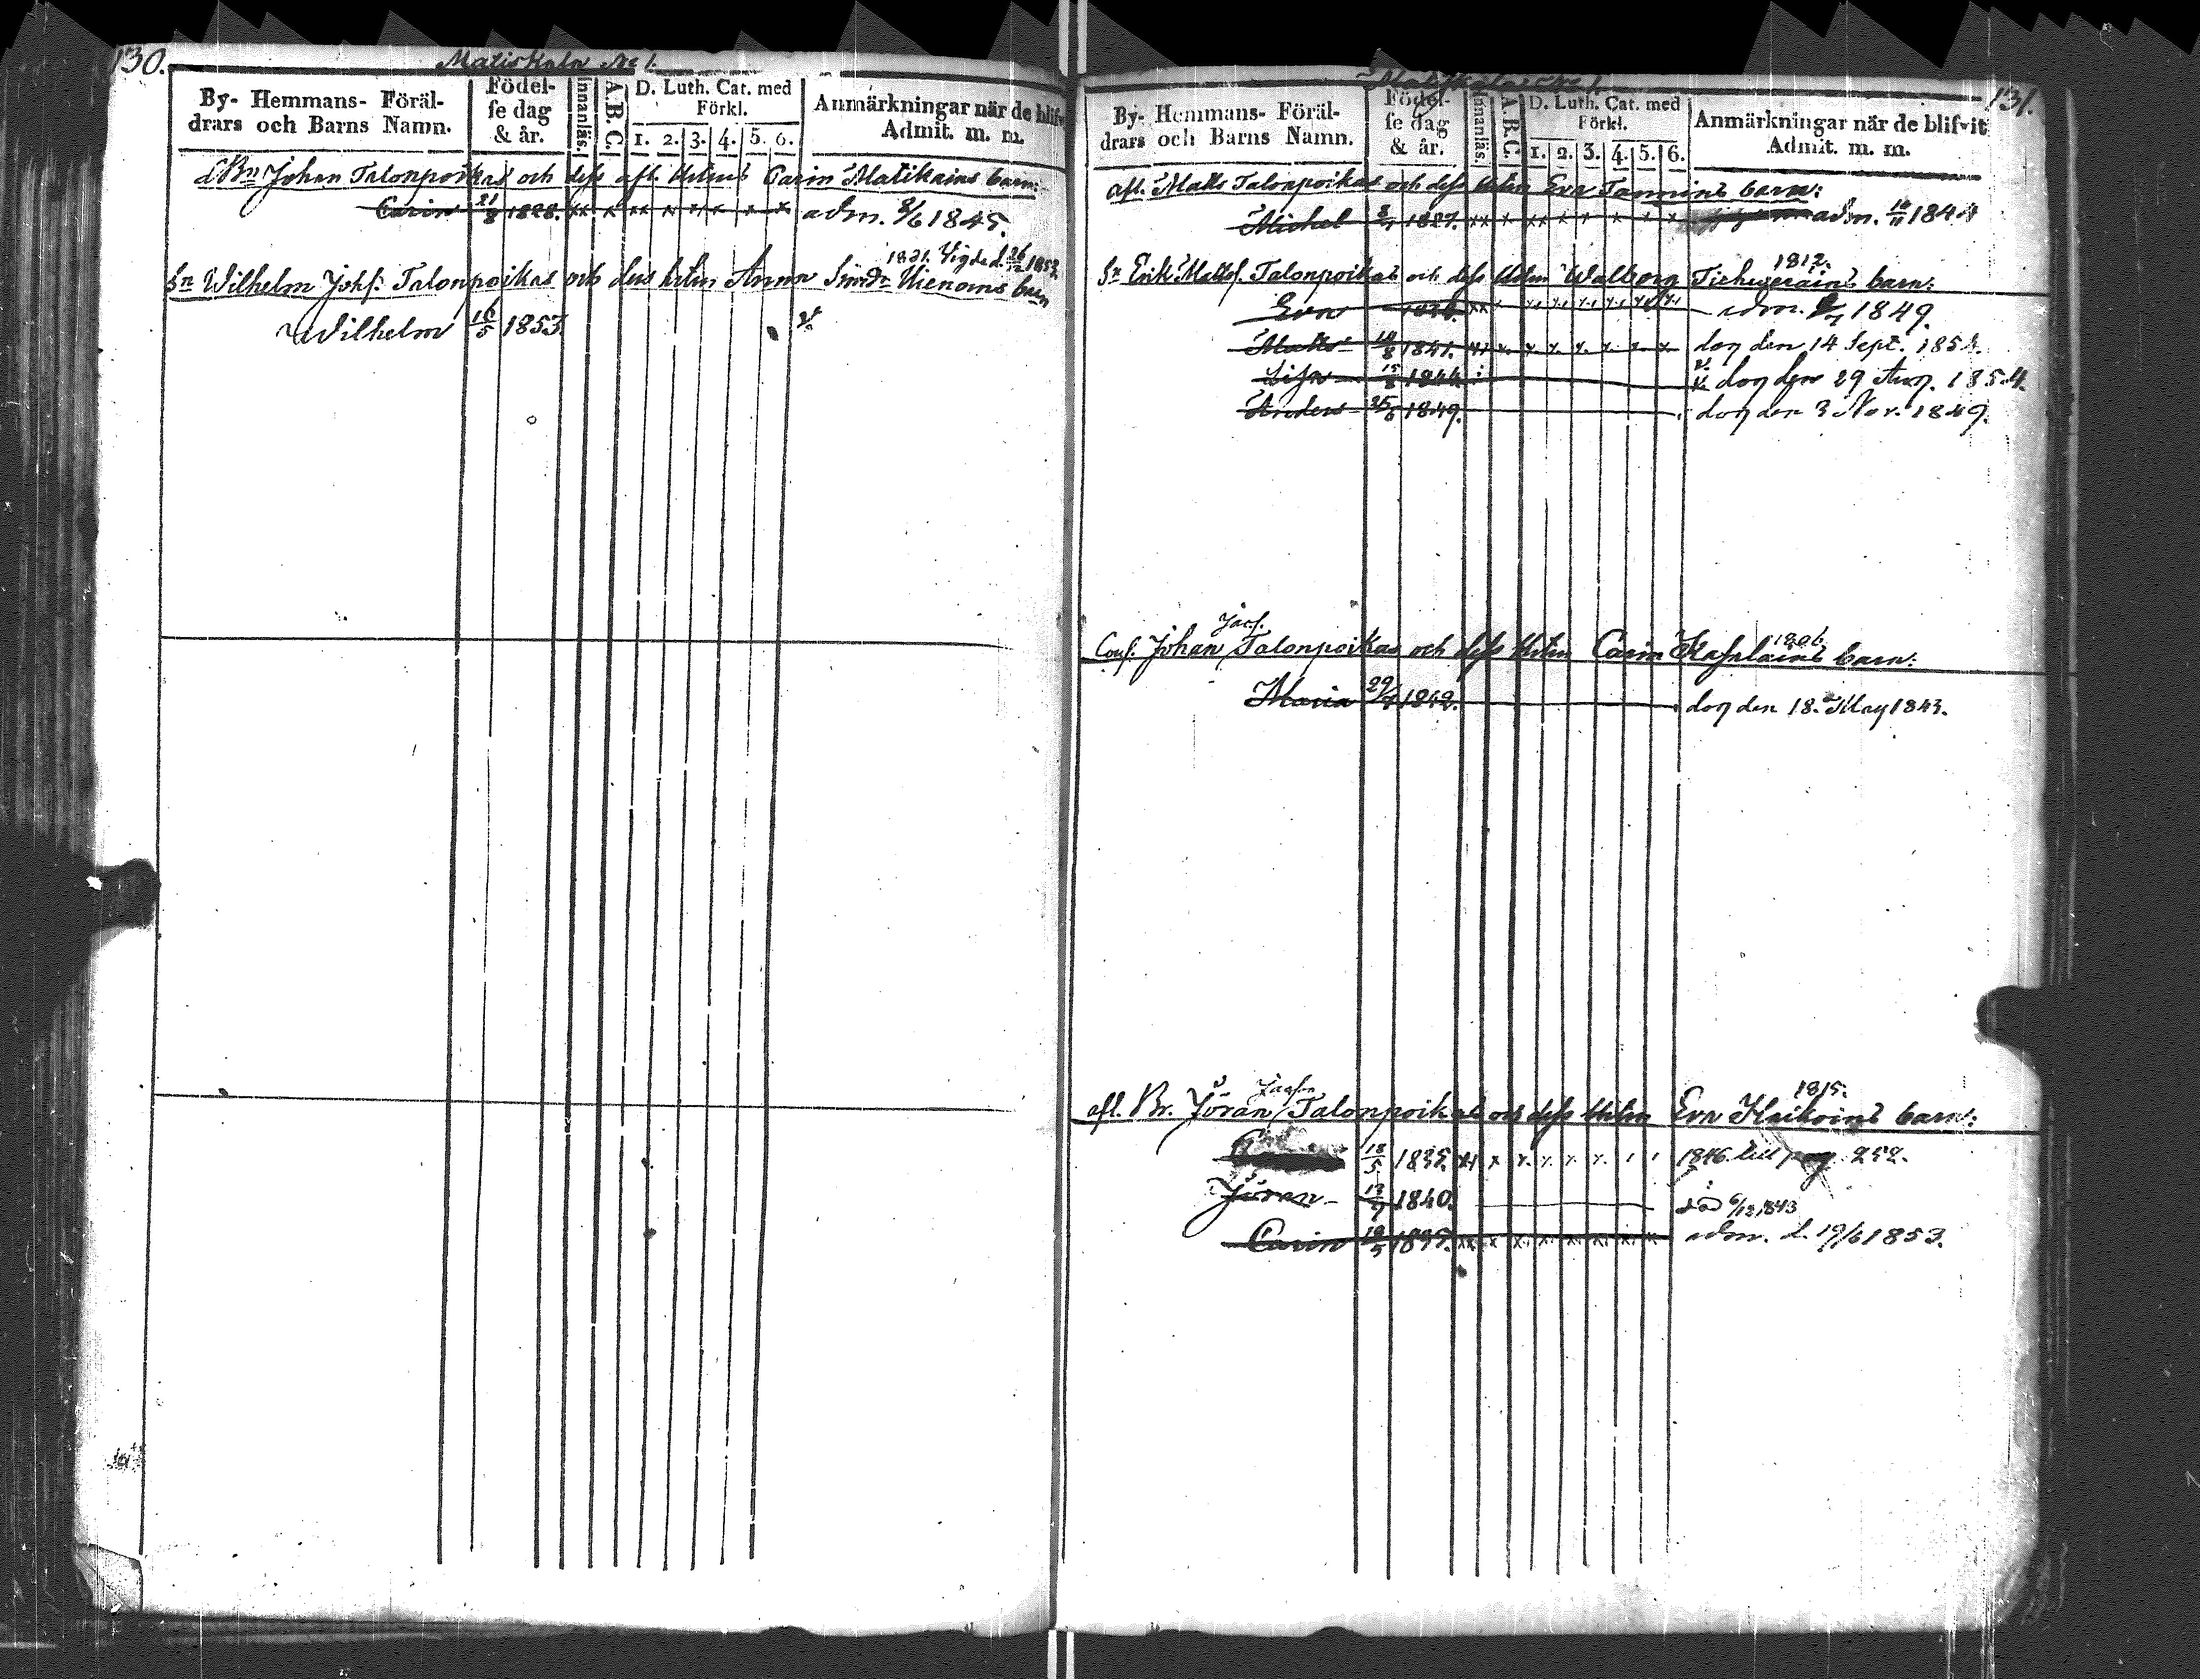 130.
Matiskala No 1.
By- Hemmans- Föräl-
drars och Barns Namn.
Födel-
se dag
& år.
Innanläs.
A.B.C.
D. Luth. Cat. med
Förkl.
1. 2. 3. 4. 5. 6.
Anmärkningar när de blifvit
Admit. m. m.
Johan Talonpoikas och dess afl. Hustrus Carin Matikains barn:
Carin 21/8 1828. adm. 8/6 1845.
1821. Vigde d. 26/12 1852
Sn Wilhelm Johs: Talonpoikas och dess hustru Anna Simdr Hienoins barn
Wilhelm 16/5 1853 v.
131.
No 1.
By- Hemmans- Föräl-
drars och Barns Namn.
Födel-
se dag
& år.
Innanläs.
A.B.C.
D. Luth. Cat. med
Förkl.
1. 2. 3. 4. 5. 6.
Anmärkningar när de blifvit
Admit. m. m.
afl. Matts Talonpoikas och dess Hustru Eva Tanninens barn:
Michel 1827. adm. 1844
1812.
Sn Erik Mattss. Talonpoikas och dess Hustru Walborg barn:
Eva adm. 1849.
Matts 14/8 1841. dog den 14 Sept. 1854.
Lisa 1844 v. dog den 29 Aug. 1854.
Anders 25/8 1849. dog den 3 Nov. 1849.
Jacs. 1806
Johan Talonpoikas och dess Hustru Carin barn:
Maria 29/7 1842. dog den 18. May 1843.
Jacsson 1815.
afl. Br. Jöran Talonpoikas och dess Hustru Eva barn:
18/5 1835. 1846 till pag. 252.
Jöran 13/7 1840. död 6/12 1843
Carin 18/5 1835. adm. d. 19/6 1853.